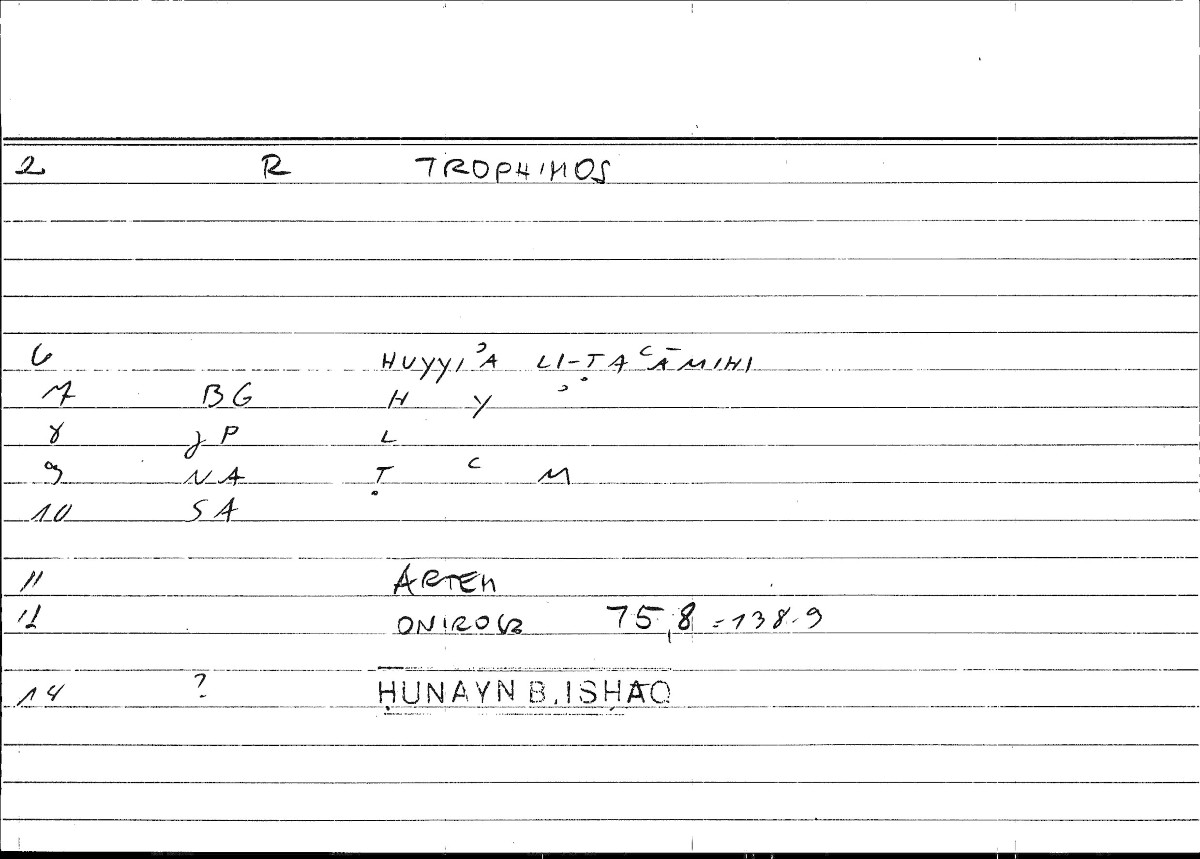 2 R TROPHIMOS
6 HUYYIʾA LI-ṬAʿĀMIHI
7 BG H Y ʾ
8 JP L
9 NA Ṭ ʿ M
10 SA
11 ARTEM
12 ONIROCR 75,8 = 138.9
14 ? ḤUNAYN B. ISḤĀQ